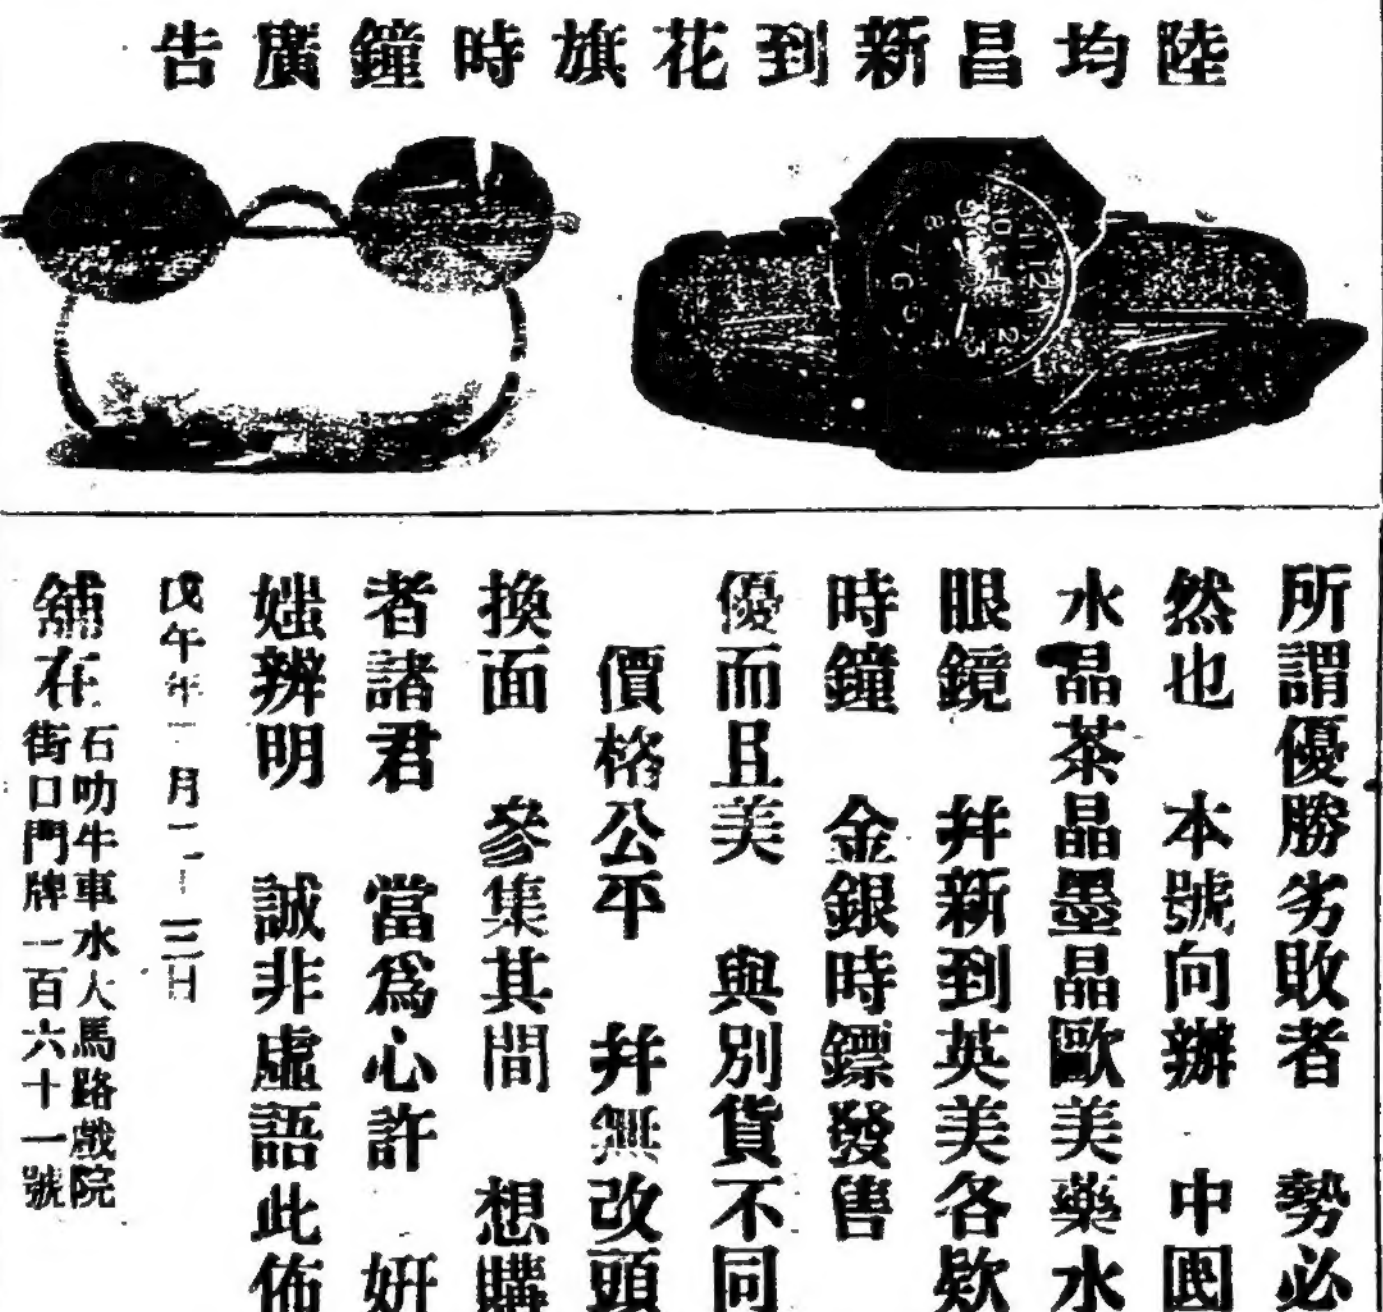 陸均昌新到花旗時鐘廣告
所謂優勝劣敗者 勢必
然也 本號向辦 中國
水晶茶晶墨晶歐美藥水
眼鏡 并新到英美各欵
時鐘 金銀時鏢發售
優而且美 與別貨不同
價格公平 并無改頭
換面 參集其間 想購
者諸君 當爲心許 妍
媸辨明 誠非虛語此佈
戊午年 月 日
舖在石叻牛車水大馬路戲院
街口門牌一百六十一號